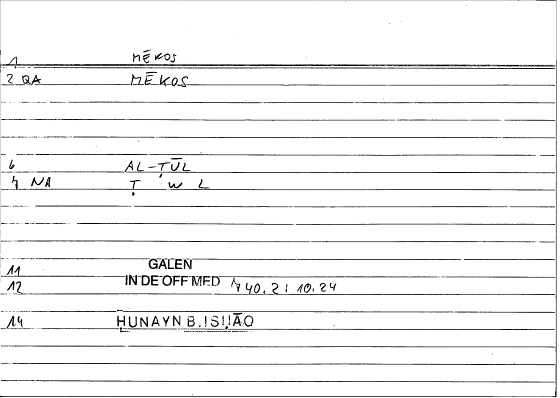 1 MĒKOS
2 QA MĒKOS
6 AL-ṬŪL
7 NA Ṭ W L
11 GALEN
12 IN DE OFF MED 740.2: 10.24
14 ḤUNAYN B. ISḤĀQ